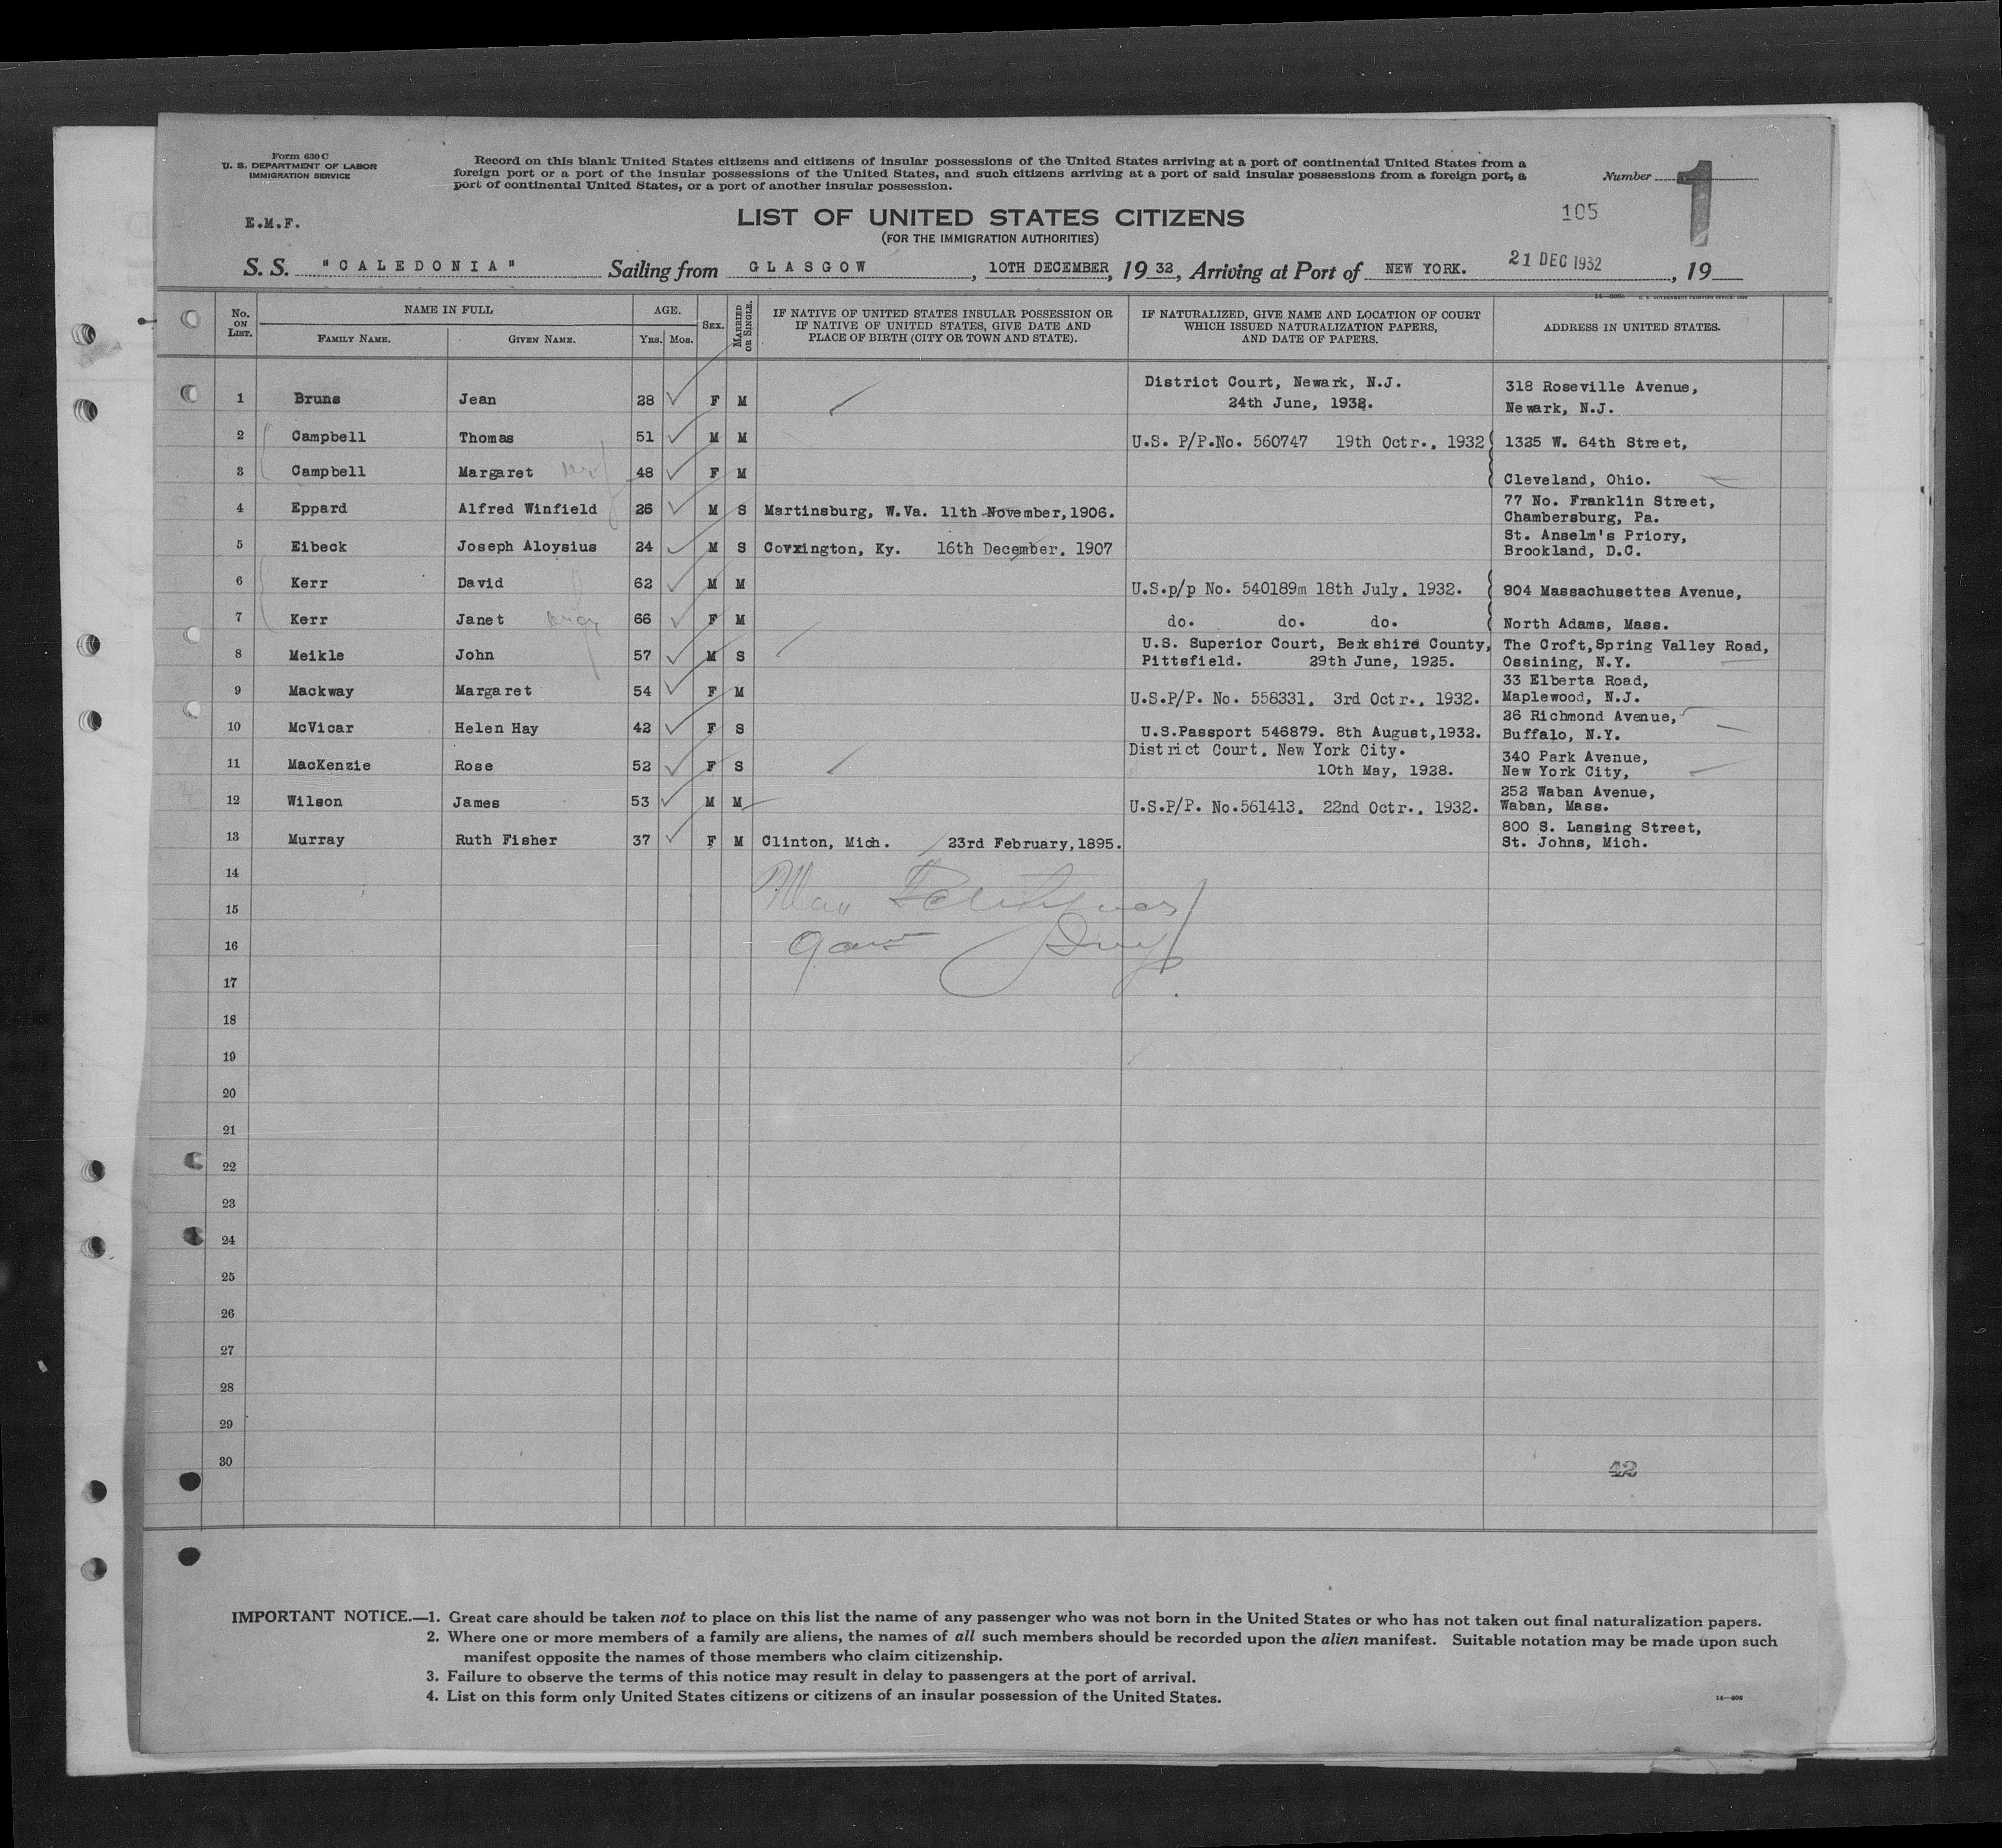 Form 630 C
U. S. DEPARTMENT OF LABOR
IMMIGRATION SERVICE
Record on this blank United States citizens and citizens of insular possessions of the United States arriving at a port of continental United States from a
foreign port or a port of the insular possessions of the United States, and such citizens arriving at a port of said insular possessions from a foreign port, a
port of continental United States, or a port of another insular possession.
Number 1
105
E.M.F.
LIST OF UNITED STATES CITIZENS
(FOR THE IMMIGRATION AUTHORITIES)
S. S. "CALEDONIA" Sailing from GLASGOW, 10TH DECEMBER, 1932, Arriving at Port of NEW YORK. 21 DEC 1932, 19
No. ON LIST. NAME IN FULL FAMILY NAME. GIVEN NAME. AGE. YRS. MOS. SEX. MARRIED OR SINGLE. IF NATIVE OF UNITED STATES INSULAR POSSESSION OR IF NATIVE OF UNITED STATES, GIVE DATE AND PLACE OF BIRTH (CITY OR TOWN AND STATE). IF NATURALIZED, GIVE NAME AND LOCATION OF COURT WHICH ISSUED NATURALIZATION PAPERS, AND DATE OF PAPERS. ADDRESS IN UNITED STATES.
1 Bruns Jean 28 F M District Court, Newark, N.J. 24th June, 1932. 318 Roseville Avenue, Newark, N.J.
2 Campbell Thomas 51 M M U.S. P/P.No. 560747 19th Octr., 1932 1325 W. 64th Street,
3 Campbell Margaret 48 F M Cleveland, Ohio.
4 Eppard Alfred Winfield 26 M S Martinsburg, W.Va. 11th November, 1906. 77 No. Franklin Street, Chambersburg, Pa.
5 Eibeck Joseph Aloysius 24 M S Covxington, Ky. 16th December. 1907 St. Anselm's Priory, Brookland, D.C.
6 Kerr David 62 M M U.S.p/p No. 540189m 18th July. 1932. 904 Massachusettes Avenue,
7 Kerr Janet 66 F M do. do. do. North Adams, Mass.
8 Meikle John 57 M S U.S. Superior Court, Berkshire County, Pittsfield. 29th June, 1925. The Croft,Spring Valley Road, Ossining, N.Y.
9 Mackway Margaret 54 F M U.S.P/P. No. 558331. 3rd Octr., 1932. 33 Elberta Road, Maplewood, N.J.
10 McVicar Helen Hay 42 F S U.S.Passport 546879. 8th August,1932. 26 Richmond Avenue, Buffalo, N.Y.
11 MacKenzie Rose 52 F S District Court. New York City. 10th May, 1928. 340 Park Avenue, New York City,
12 Wilson James 53 M M U.S.P/P. No.561413. 22nd Octr., 1932. 252 Waban Avenue, Waban, Mass.
13 Murray Ruth Fisher 37 F M Clinton, Mich. 23rd February,1895. 800 S. Lansing Street, St. Johns, Mich.
14
15
16
17
18
19
20
21
22
23
24
25
26
27
28
29
30
42
IMPORTANT NOTICE.—1. Great care should be taken not to place on this list the name of any passenger who was not born in the United States or who has not taken out final naturalization papers.
2. Where one or more members of a family are aliens, the names of all such members should be recorded upon the alien manifest. Suitable notation may be made upon such
manifest opposite the names of those members who claim citizenship.
3. Failure to observe the terms of this notice may result in delay to passengers at the port of arrival.
4. List on this form only United States citizens or citizens of an insular possession of the United States.